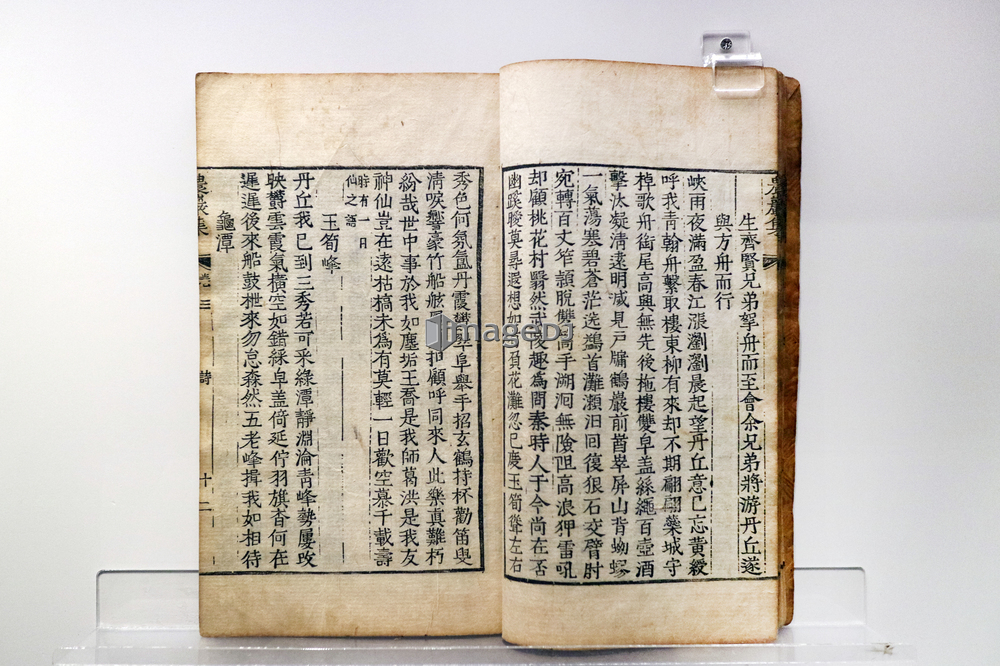 生齊賢兄弟拏舟而至會余兄弟將游丹丘遂
與方舟而行
峽雨夜滿盈春江漲瀏瀏晨起望丹丘意已忘黃綬
呼我青翰舟繫取樓東柳有來却不期翩翩藥城守
棹歌舟銜尾高興無先後拖樓雙皁盖絲繩百壺酒
擊汰凝清遠明滅見戶牖鶴巖前酋崒屏山背蚴蟉
一氣蕩寒碧蒼茫迷鷁首灘瀨汩回復狠石交臂肘
宛轉百丈笮顫脫雙高手溯洄無險阻高浪狎雷吼
却顧桃花村翳然武陵趣為問秦時人于今尚在否
幽蹊曖莫尋還想如花灘忽已慶玉筍聳左右
秀色何氛氳丹霞阜舉手招玄鶴持杯勸笛叟
清唳響豪竹船舷扣顧呼同來人此樂真難朽
紛哉世中事於我如塵垢王喬是我師葛洪是我友
神仙豈在遠枯槁未為有莫輕一日歡空慕千載壽
時有一日
仙之語
玉筍峰
丹丘我已到三秀若可采綠潭靜淵淪青峰勢屢改
映鬱雲霞氣橫空如錯綵皁盖倚延佇羽旗杳何在
遲遲後來船鼓枻來勿怠森然五老峰揖我如相待
龜潭
農巖集
卷三
詩
十二
imageDJ